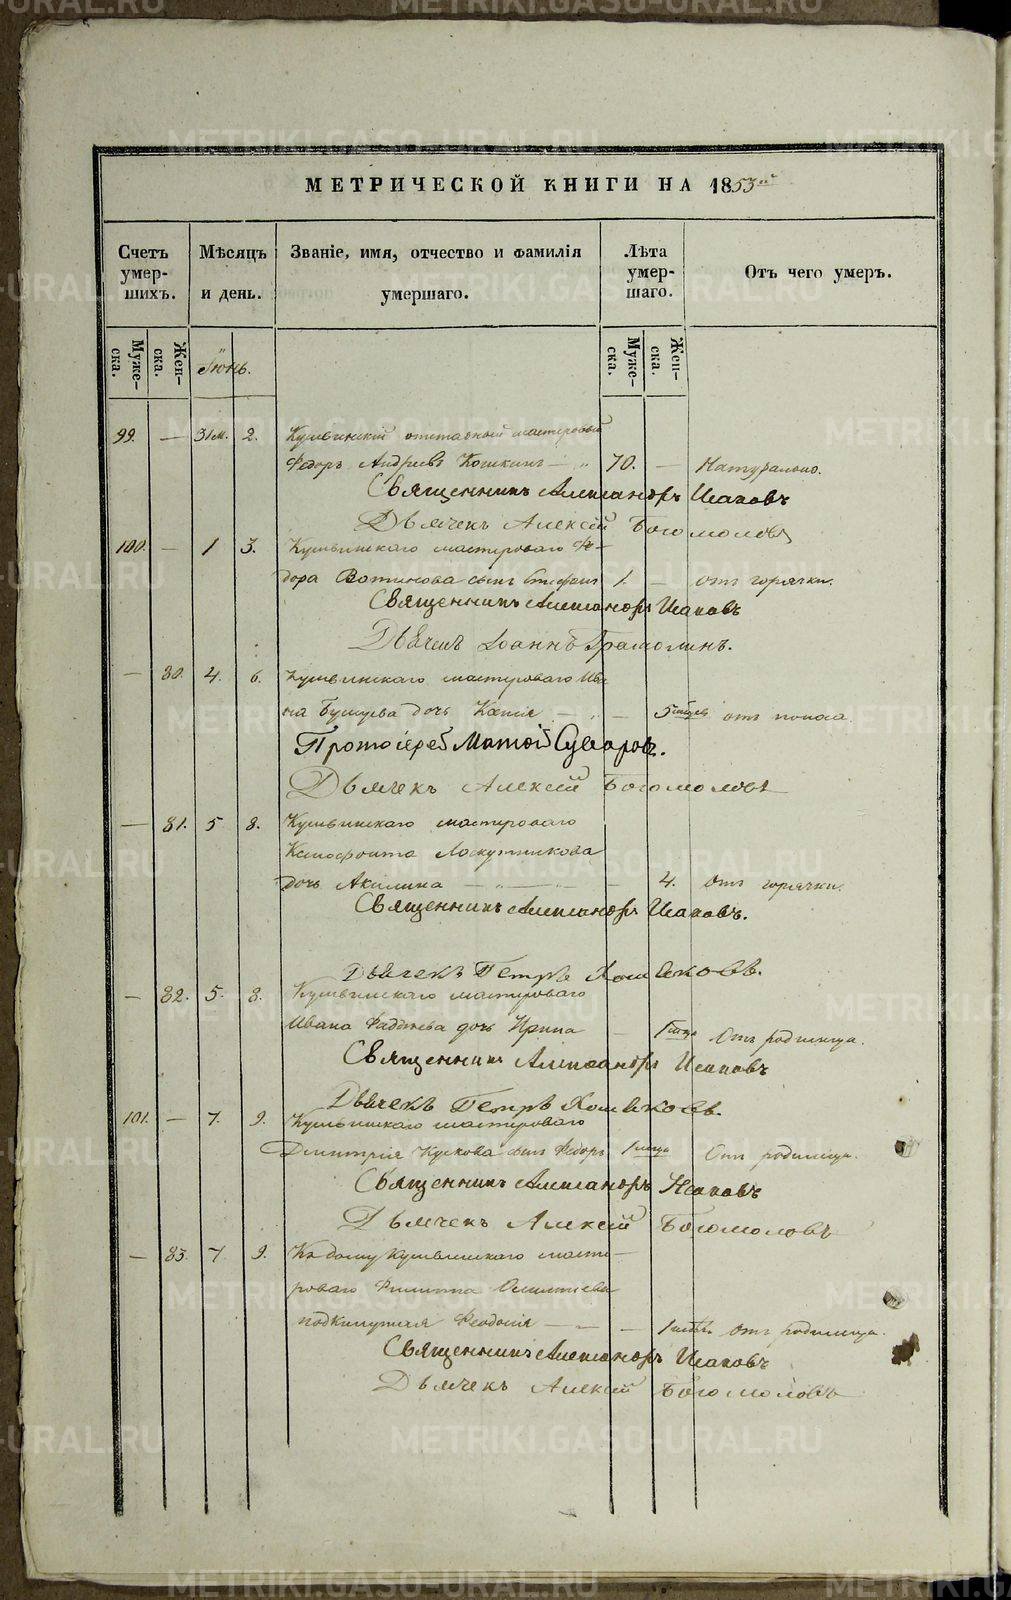 МЕТРИЧЕСКОЙ КНИГИ НА 1853ій
Счетъ умершихъ.
Мѣсяцъ и день.
Званіе, имя, отчество и фамилія умершаго.
Лѣта умершаго.
Отъ чего умеръ.
Мужеска.
Женска.
Іюнь.
Мужеска.
Женска.
99. — 31 м. 2. Кушвинскій отставной мастеровый
Федоръ Андреевъ Кошкинъ — 70. — Натурально.
Священникъ Александръ Исаковъ
Дьячекъ Алексій Богомоловъ
100. — 1 3. Кушвинскаго мастероваго Фе-
дора Вотинова сынъ Стефанъ 1. — отъ горячки.
Священникъ Александръ Исаковъ
Дьячекъ Іоаннъ Грамолинъ.
— 80. 4. 6. Кушвинскаго мастероваго Ива-
на Бушуева дочь Ксенія — — 5 мѣсяц отъ поноса.
Протоіерей Матѳій Суваровъ.
Дьячекъ Алексій Богомоловъ
— 81. 5 8. Кушвинскаго мастероваго
Ксенофонта Лоскутникова
дочь Акилина — — — 4. отъ горячки.
Священникъ Александръ Исаковъ.
Дьячекъ Петръ Хомяковъ.
— 82. 5. 8. Кушвинскаго мастероваго
Ивана Фаддѣева дочь Ирина — 1 мѣсяц Отъ родимца.
Священникъ Александръ Исаковъ
Дьячекъ Петръ Хомяковъ.
101. — 7. 9. Кушвинскаго мастероваго
Дмитрія Кускова сынъ Федоръ 1 мѣсяц Отъ родимца.
Священникъ Александръ Исаковъ
Дьячекъ Алексій Богомоловъ
— 83. 7. 9. Къ дому Кушвинскаго масте-
роваго Филиппа
подкинутая Феодосія — — — 1 мѣс. отъ родимца.
Священникъ Александръ Исаковъ
Дьячекъ Алексій Богомоловъ
METRIKI.GASO-URAL.RU